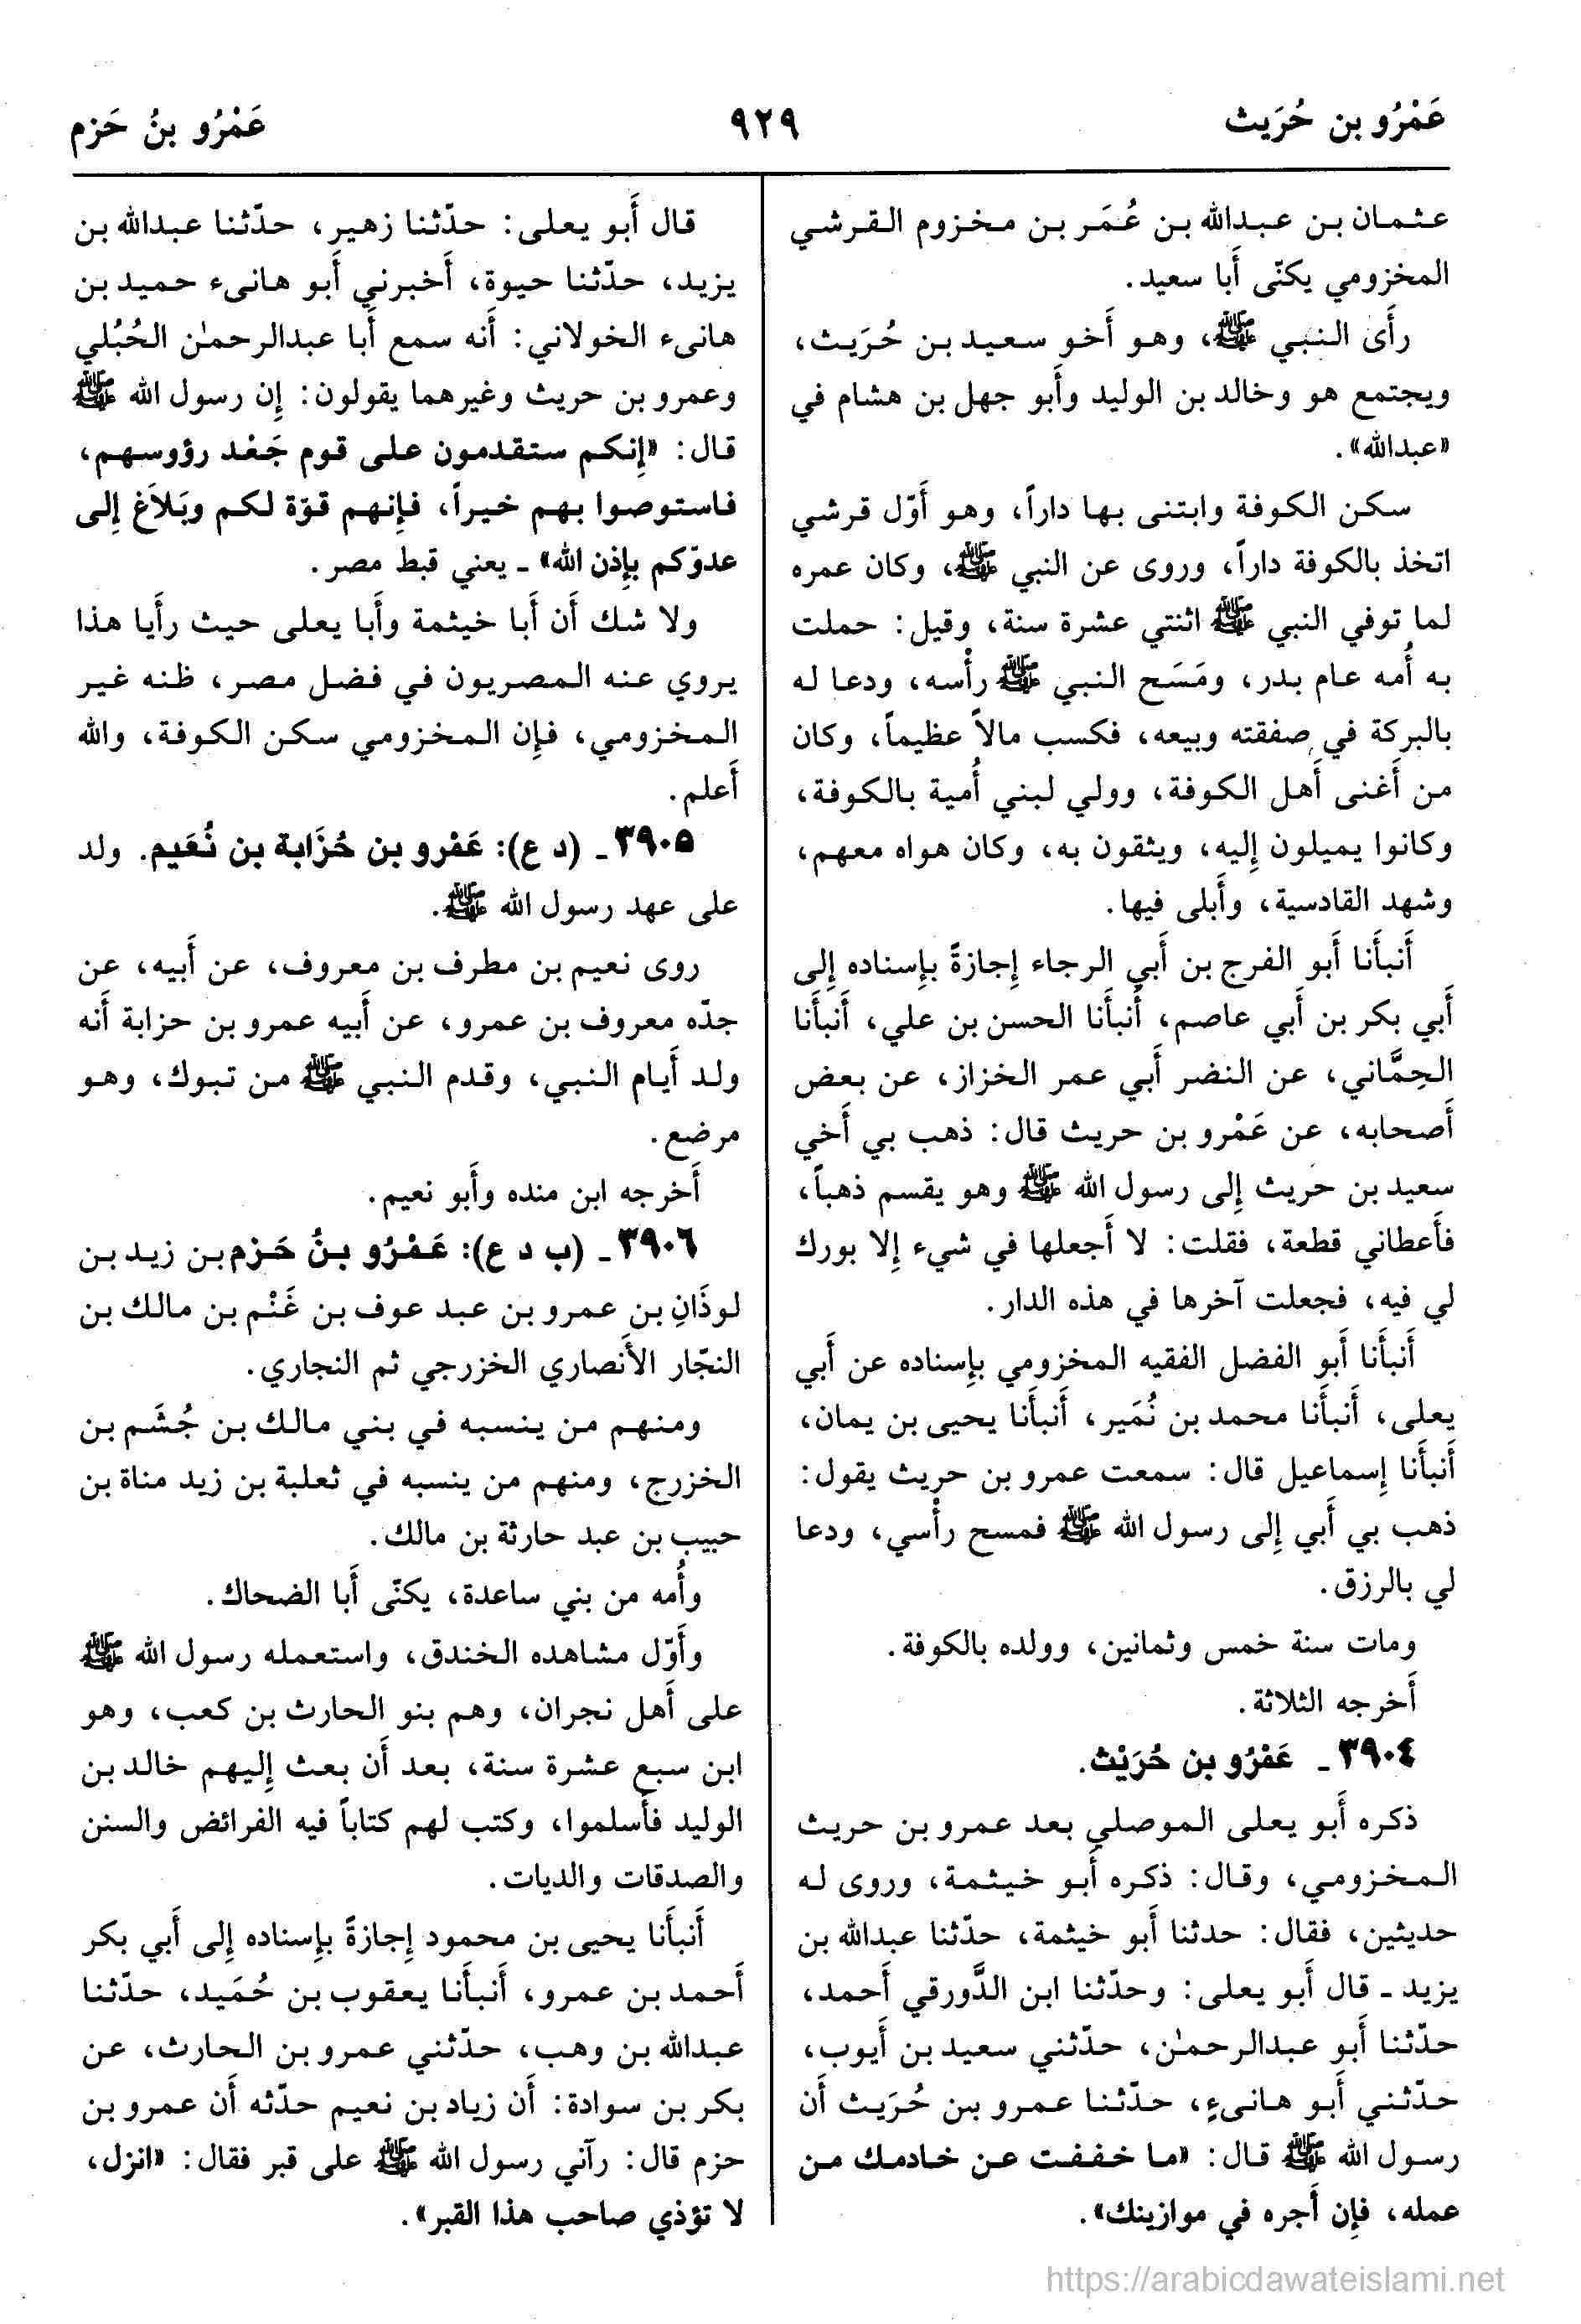 عَمْرُو بن حُرَيث
٩٢٩
عَمْرُو بنُ حَزم
عثمان بن عبدالله بن عُمَر بن مخزوم القرشي
المخزومي يكنّى أَبا سعيد.
رأَى النبي ﷺ، وهو أَخو سعيد بن حُرَيث،
ويجتمع هو وخالد بن الوليد وأَبو جهل بن هشام في
«عبدالله».
سكن الكوفة وابتنى بها داراً، وهو أَوّل قرشي
اتخذ بالكوفة داراً، وروى عن النبي ﷺ، وكان عمره
لما توفي النبي ﷺ اثنتي عشرة سنة، وقيل: حملت
به أُمه عام بدر، ومَسَح النبي ﷺ رأْسه، ودعا له
بالبركة في صفقته وبيعه، فكسب مالاً عظيماً، وكان
من أَغنى أَهل الكوفة، وولي لبني أُمية بالكوفة،
وكانوا يميلون إِليه، ويثقون به، وكان هواه معهم،
وشهد القادسية، وأَبلى فيها.
أَنبأَنا أَبو الفرج بن أَبي الرجاء إِجازةً بإِسناده إِلى
أَبي بكر بن أَبي عاصم، أَنبأَنا الحسن بن علي، أَنبأَنا
الحِمَّاني، عن النضر أَبي عمر الخزاز، عن بعض
أَصحابه، عن عَمْرو بن حريث قال: ذهب بي أَخي
سعيد بن حريث إِلى رسول الله ﷺ وهو يقسم ذهباً،
فأَعطاني قطعة، فقلت: لا أَجعلها في شيء إِلا بورك
لي فيه، فجعلت آخرها في هذه الدار.
أَنبأَنا أَبو الفضل الفقيه المخزومي بإِسناده عن أَبي
يعلى، أَنبأَنا محمد بن نُمَير، أَنبأَنا يحيى بن يمان،
أَنبأَنا إِسماعيل قال: سمعت عمرو بن حريث يقول:
ذهب بي أَبي إِلى رسول الله ﷺ فمسح رأْسي، ودعا
لي بالرزق.
ومات سنة خمس وثمانين، وولده بالكوفة.
أَخرجه الثلاثة.
٣٩٠٤ ـ عَمْرُو بن حُرَيْث.
ذكره أَبو يعلى الموصلي بعد عمرو بن حريث
المخزومي، وقال: ذكره أَبو خيثمة، وروى له
حديثين، فقال: حدثنا أَبو خيثمة، حدّثنا عبدالله بن
يزيد ـ قال أَبو يعلى: وحدّثنا ابن الدَّورقي أَحمد،
حدّثنا أَبو عبدالرحمٰن، حدّثني سعيد بن أَيوب،
حدّثني أَبو هانىءٍ، حدّثنا عمرو بن حُرَيث أَن
رسول الله ﷺ قال: «ما خففت عن خادمك من
عمله، فإِن أَجره في موازينك».
قال أَبو يعلى: حدّثنا زهير، حدّثنا عبدالله بن
يزيد، حدّثنا حيوة، أَخبرني أَبو هانىء حميد بن
هانىء الخولاني: أَنه سمع أَبا عبدالرحمٰن الحُبُلي
وعمرو بن حريث وغيرهما يقولون: إِن رسول الله ﷺ
قال: «إِنكم ستقدمون على قوم جَعْد رؤوسهم،
فاستوصوا بهم خيراً، فإِنهم قوّة لكم وبَلاَغ إِلى
عدوّكم بإِذن الله» ـ يعني قبط مصر.
ولا شك أَن أَبا خيثمة وأَبا يعلى حيث رأَيا هذا
يروي عنه المصريون في فضل مصر، ظنه غير
المخزومي، فإِن المخزومي سكن الكوفة، والله
أَعلم.
٣٩٠٥ ـ (د ع): عَمْرو بن حُزَابة بن نُعَيم. ولد
على عهد رسول الله ﷺ.
روى نعيم بن مطرف بن معروف، عن أَبيه، عن
جدّه معروف بن عمرو، عن أَبيه عمرو بن حزابة أَنه
ولد أَيام النبي، وقدم النبي ﷺ من تبوك، وهو
مرضع.
أَخرجه ابن منده وأَبو نعيم.
٣٩٠٦ ـ (ب د ع): عَمْرُو بنُ حَزم بن زيد بن
لوذَانِ بن عمرو بن عبد عوف بن غَنْم بن مالك بن
النجّار الأَنصاري الخزرجي ثم النجاري.
ومنهم من ينسبه في بني مالك بن جُشَم بن
الخزرج، ومنهم من ينسبه في ثعلبة بن زيد مناة بن
حبيب بن عبد حارثة بن مالك.
وأُمه من بني ساعدة، يكنّى أَبا الضحاك.
وأَوّل مشاهده الخندق، واستعمله رسول الله ﷺ
على أَهل نجران، وهم بنو الحارث بن كعب، وهو
ابن سبع عشرة سنة، بعد أَن بعث إِليهم خالد بن
الوليد فأَسلموا، وكتب لهم كتاباً فيه الفرائض والسنن
والصدقات والديات.
أَنبأَنا يحيى بن محمود إِجازةً بإِسناده إِلى أَبي بكر
أَحمد بن عمرو، أَنبأَنا يعقوب بن حُمَيد، حدّثنا
عبدالله بن وهب، حدّثني عمرو بن الحارث، عن
بكر بن سوادة: أَن زياد بن نعيم حدّثه أَن عمرو بن
حزم قال: رآني رسول الله ﷺ على قبر فقال: «انزل،
لا تؤذي صاحب هذا القبر».
https://arabicdawateislami.net